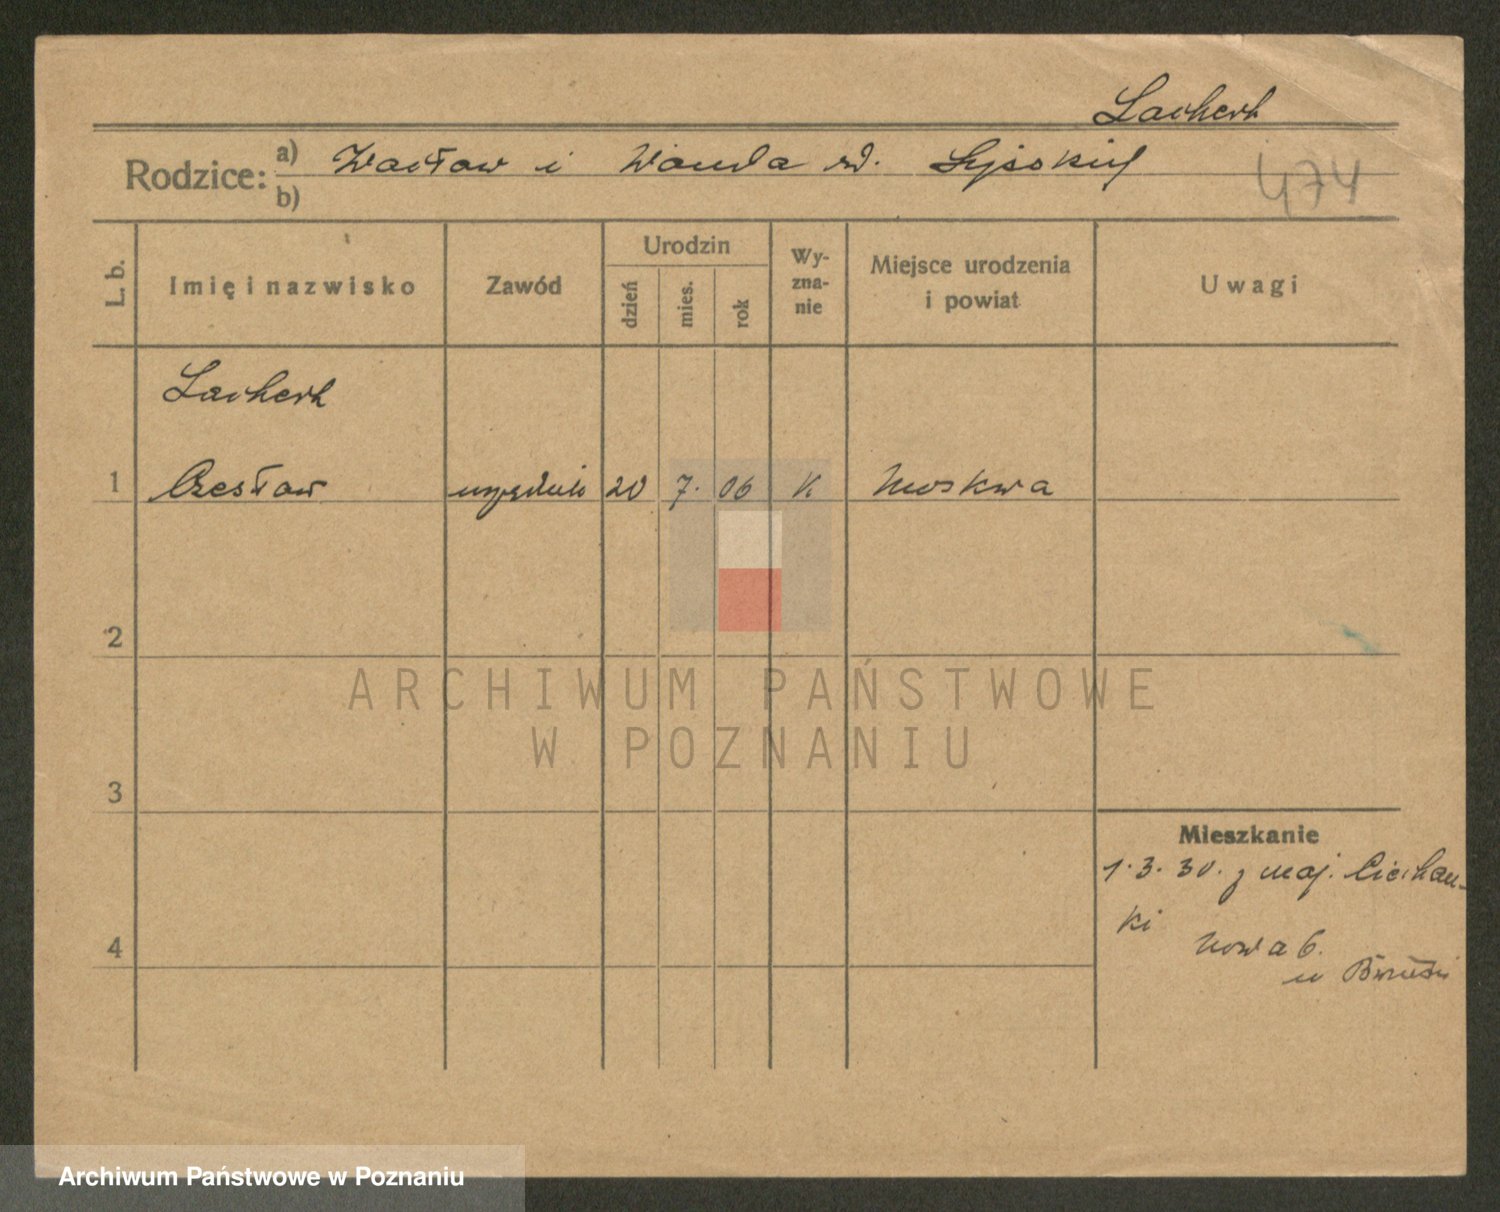 Lachert
Rodzice: a) Wacław i Wanda zd.
b)
474
L. b.
Imię i nazwisko
Zawód
Urodzin
dzień
mies.
rok
Wy-
zna-
nie
Miejsce urodzenia
i powiat
Uwagi
Lachert
1 Czesław urzędnik 20 7. 06 K Moskwa
2
ARCHIWUM PAŃSTWOWE
W POZNANIU
3
Mieszkanie
1.3.30. z maj. Ciechan-
ki
4
Nowa 6.
u
Archiwum Państwowe w Poznaniu